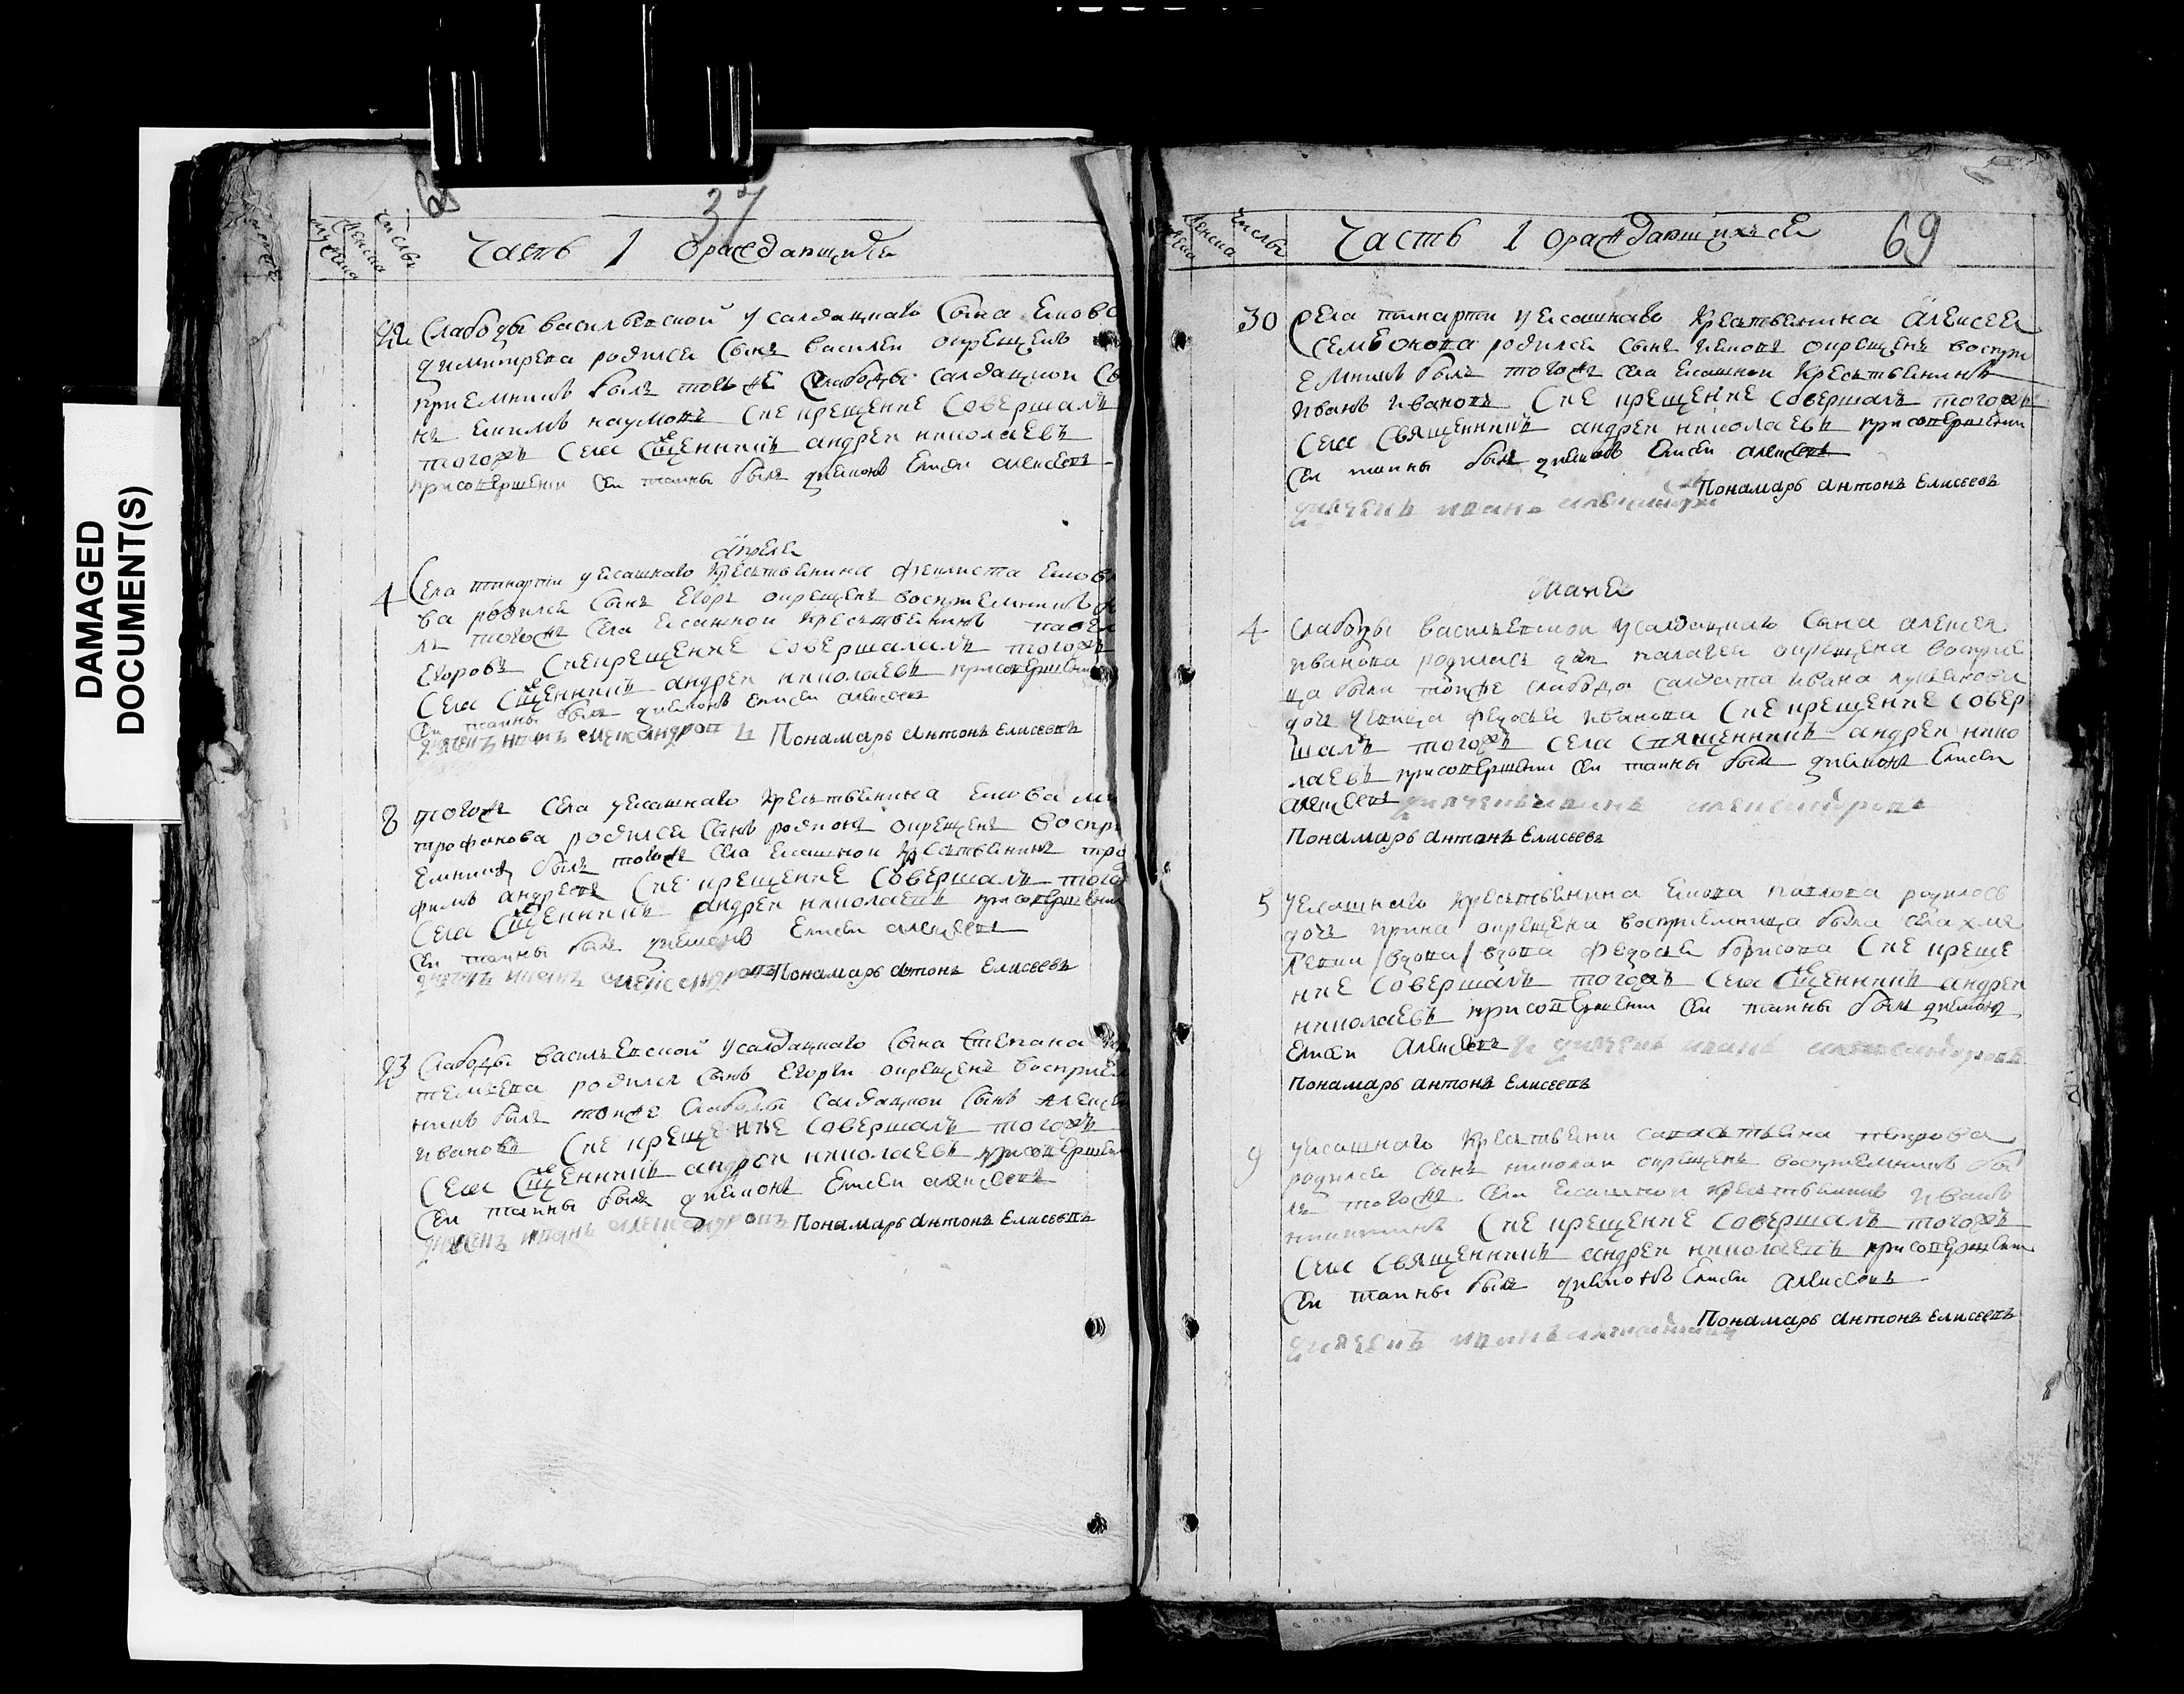 DAMAGED
DOCUMENT(S)
68
37
мужеска
женска
числы
Часть 1 ораждающихся
22 Слабоды васильевской у салдацкаго сына
димитрева родился сынъ василеи окрещенъ
приемникъ былъ тоеж слабоды салдацкои
наумовъ сие крещение совершалъ
тогожъ села сщенникъ андреи николаевъ
присовершении сеи таины былъ диаконъ елисеи алексеевъ
апреля
4 села у ясашнаго крестьянина феклиста
ва родился сынъ егоръ окрещенъ восприемникъ
лъ тогожъ села ясашнои крестьянинъ
егоровъ сие крещение совершалалъ тогожъ
села сщенникъ андреи николаевъ присовершении
сеи таины былъ диаконъ елисеи алексеевъ
дьячекъ иванъ александровъ Понамарь антонъ елисеевъ
8 тогожъ села у ясашнаго крестьянина якова ми
трофанова родился сынъ родионъ окрещенъ воспри
емникъ былъ тогожъ села ясашнои крестьянинъ тро
фимъ андреевъ сие крещение совершалъ тогож
села сщенникъ андреи николаевъ присовершении
сеи таины былъ диаконъ елисеи алексеевъ
дьячекъ иванъ александровъ Понамарь антонъ елисеевъ
23 слабоды васильевской у салдацкаго сына степана
родился сынъ егореи окрещенъ восприем
никъ былъ тоижъ слабоды салдацкои сынъ алексеи
ивановъ сие крещение совершалъ тогожъ
села сщенникъ андреи николаевъ присовершении
сеи таины былъ диаконъ елисеи алексеевъ
дьячекъ иванъ александровъ Понамарь антонъ елисеевъ
женска
числы
Часть 1 ораждающихъся 69
30 села у ясашнаго крестьянина алексея
семионова родился сынъ окрещенъ воспри
емникъ былъ тогожъ села ясашнои крестьянинъ
иванъ ивановъ сие крещение совершалъ тогожъ
села священникъ андреи николаевъ присовершении
сеи таины былъ диаконъ елисеи алексеевъ
Понамарь антонъ Елисеевъ
дьячекъ иванъ александровъ
маия
4 слабоды васильевской у салдацкаго сына алексея
иванова родилась дочь палагея окрещена восприе
ца была тоижъ слабоды салдата ивана
дочь девица федосья иванова сие крещение совер
шалъ тогожъ села священникъ андреи нико
лаевъ присовершении сеи таины былъ диаконъ елисеи
алексеевъ дьячекъ иванъ александровъ
Понамарь антонъ елисеевъ
5 у ясашнаго крестьянина якова павлова родилось
дочь ирина окрещена восприемница была села
вдова федосья борисова сие креще
ние совершалъ тогожъ села сщенникъ андреи
николаевъ присовершении сеи таины былъ диаконъ
елисеи алексеевъ дьячекъ иванъ александровъ
Понамарь антонъ Елисеевъ
9 у ясашнаго крестьянина савастьяна петрова
родился сынъ николаи окрещенъ восприемникъ бы
лъ тогожъ села ясашнои крестьянинъ иванъ
никитинъ сие крещение совершалъ тогожъ
села священникъ андреи николаевъ присовершении
сеи таины былъ диаконъ елисеи алексеевъ
Понамарь антонъ Елисеевъ
дьячекъ иванъ александровъ